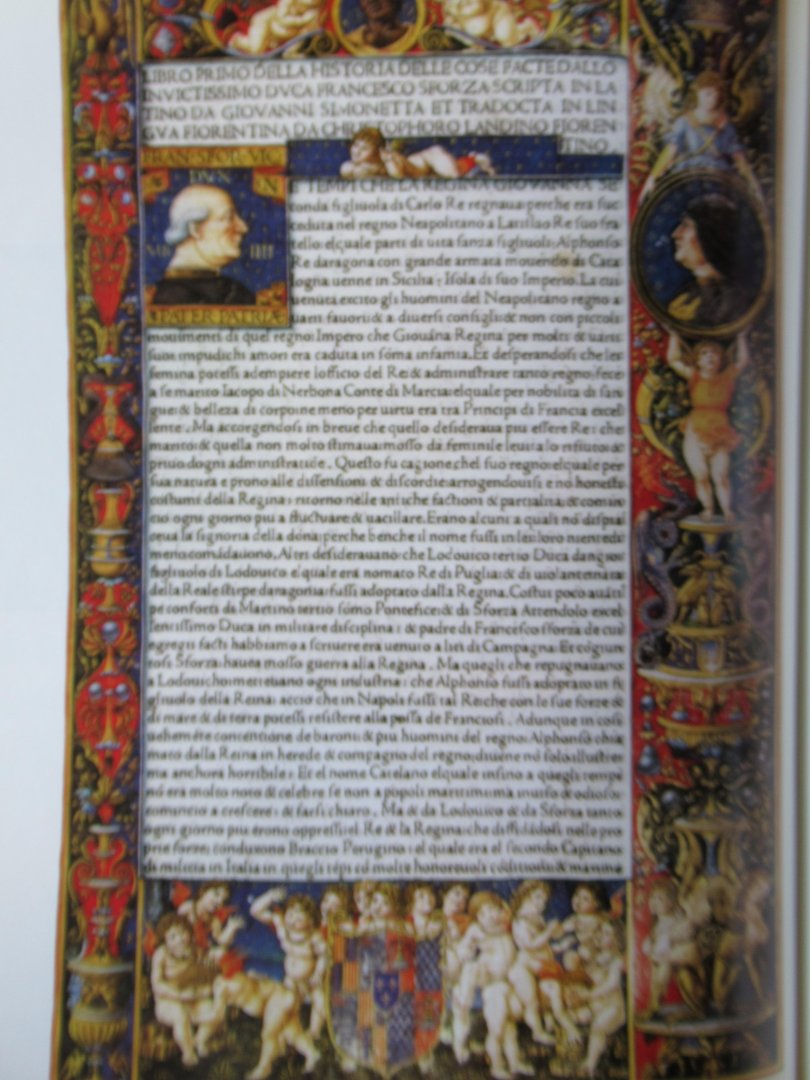 LIBRO PRIMO DELLA HISTORIA DELLE COSE FACTE DALLO
INVICTISSIMO DVCA FRANCESCO SFORZA SCRIPTA IN LA
TINO DA GIOVANNI SIMONETTA ET TRADOCTA IN LIN
GVA FIORENTINA DA CHRISTOPHORO LANDINO FIOREN
TINO
FRAN·SFOR·VIC
DVX
IIII
PATER·PATRIÆ
E TEMPI CHE LA REGINA GIOVANNA SE
conda figliuola di Carlo Re regnaua: perche era suc
ceduta nel regno Neapolitano a Latislao Re suo fra
tello: elquale parti di uita sanza figliuoli: Alphonso
Re daragona con grande armata mouendo di Cata
logna uenne in Sicilia: Isola di suo Imperio. La cui
uenuta excito gli huomini del Neapolitano regno a
uarii fauori: & a diuersi consigli: & non con piccoli
mouimenti di quel regno: Impero che Giouãna Regina per molti & uarii
suoi impudichi amori era caduta in sõma infamia. Et desperandosi che les
femina potessi adempiere lofficio del Re: & administrare tanto regno: fece
a se marito Iacopo di Nerbona Conte di Marcia: elquale per nobilita di san
gue: & belleza di corpo: ne meno per uirtu era tra Principi di Francia excel
lente. Ma accorgendosi in breue che quello desideraua piu essere Re: che
marito: & quella non molto stimaua: mosso da feminile leuita lo rifiuto: &
priuo dogni administratiõe. Questo fu cagione chel suo regno: elquale per
sua natura e prono alle dissensioni & discordie: arrogendouisi e nõ honesti
costumi della Regina: ritorno nelle antiche factioni & partialita: & comin
cio ogni giorno piu a fluctuare & uacillare. Erano alcuni a quali nõ dispia
ceua la signoria della dõna: perche benche il nome fussi in lei: loro niente di
meno comãdauono. Altri desiderauano: che Lodouico tertio Duca dangio:
figliuolo di Lodouico elquale era nomato Re di Puglia: & di
della Reale stirpe daragona: fussi adoptato dalla Regina. Costui poco auãti
pe conforti di Martino tertio sõmo Pontefice: & di Sforza Attendolo excel
lentissimo Duca in militare disciplina: & padre di Francesco sforza de cui
egregii facti habbiamo a scriuere era uenuto a liti di Campagna: Et cõgiun
tosi Sforza: haueua mosso guerra alla Regina. Ma quegli che repugnauano
a Lodouicho: metteuano ogni industria: che Alphonso fussi adoptato in fi
gliuolo della Reina: accio che in Napoli fussi tal Re: che con le sue forze &
di mare & di terra potessi resistere alla possa de Franciosi. Adunque in cosi
uehemẽte contentione de baroni: & piu huomini del regno: Alphonso chia
mato dalla Reina in herede & compagno del regno: diuẽne nõ solo illustre:
ma anchora horribile: Et el nome Catelano elquale infino a quegli tempi
nõ era molto noto & celebre se non a popoli maritimi: ma inuiso & odioso:
comincio a crescere: & farsi chiaro. Ma & da Lodouico & da Sforza tanto
ogni giorno piu erono oppressi el Re & la Regina: che diffidãdosi nelle pro
prie forze: condussono Braccio Perugino: el quale era el secondo Capitano
di militia in Italia in quegli tẽpi cõ molte honoreuoli cõditioni: &